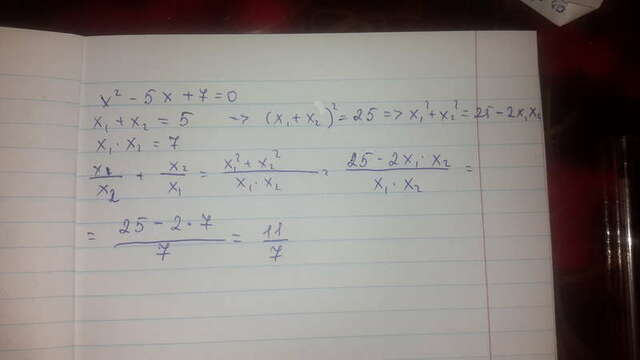 x² - 5x + 7 = 0
x₁ + x₂ = 5 → (x₁ + x₂)² = 25 => x₁² + x₂² = 25 - 2x₁x₂
x₁ · x₂ = 7
x₁/x₂ + x₂/x₁ = (x₁² + x₂²)/(x₁ · x₂) = (25 - 2x₁ · x₂)/(x₁ · x₂) =
= (25 - 2 · 7)/7 = 11/7